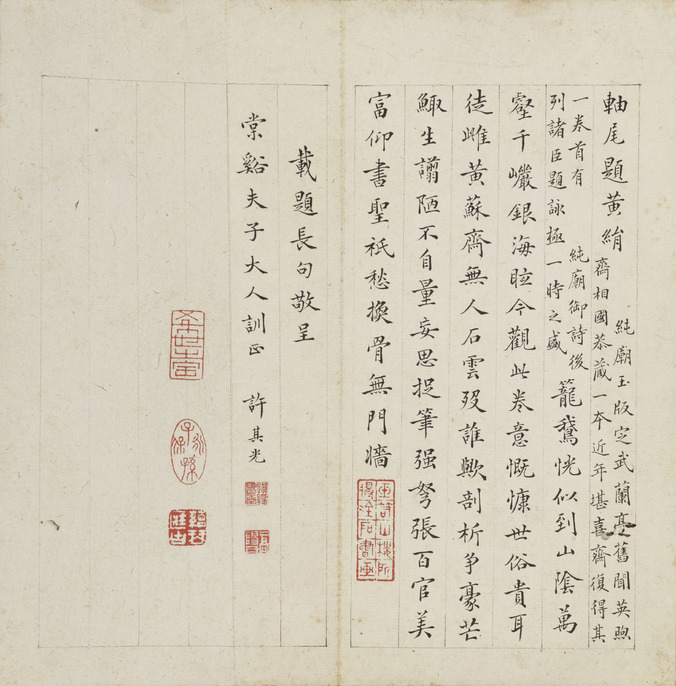 軸尾題黃絹
純廟玉版定武蘭亭舊聞英煦
齋相國恭藏一本近年堪喜齋復得其
一卷首有 純廟御詩後
列諸臣題詠極一時之盛
籠鵝恍似到山陰萬
壑千巖銀海眩今觀此卷意慨慷世俗貴耳
徒雌黃蘇齋無人石雲歿誰歟剖析爭豪芒
鯫生譾陋不自量妄思捉筆强弩張百官美
富仰書聖祇愁換骨無門牆
載題長句敬呈
棠谿夫子大人訓正 許其光